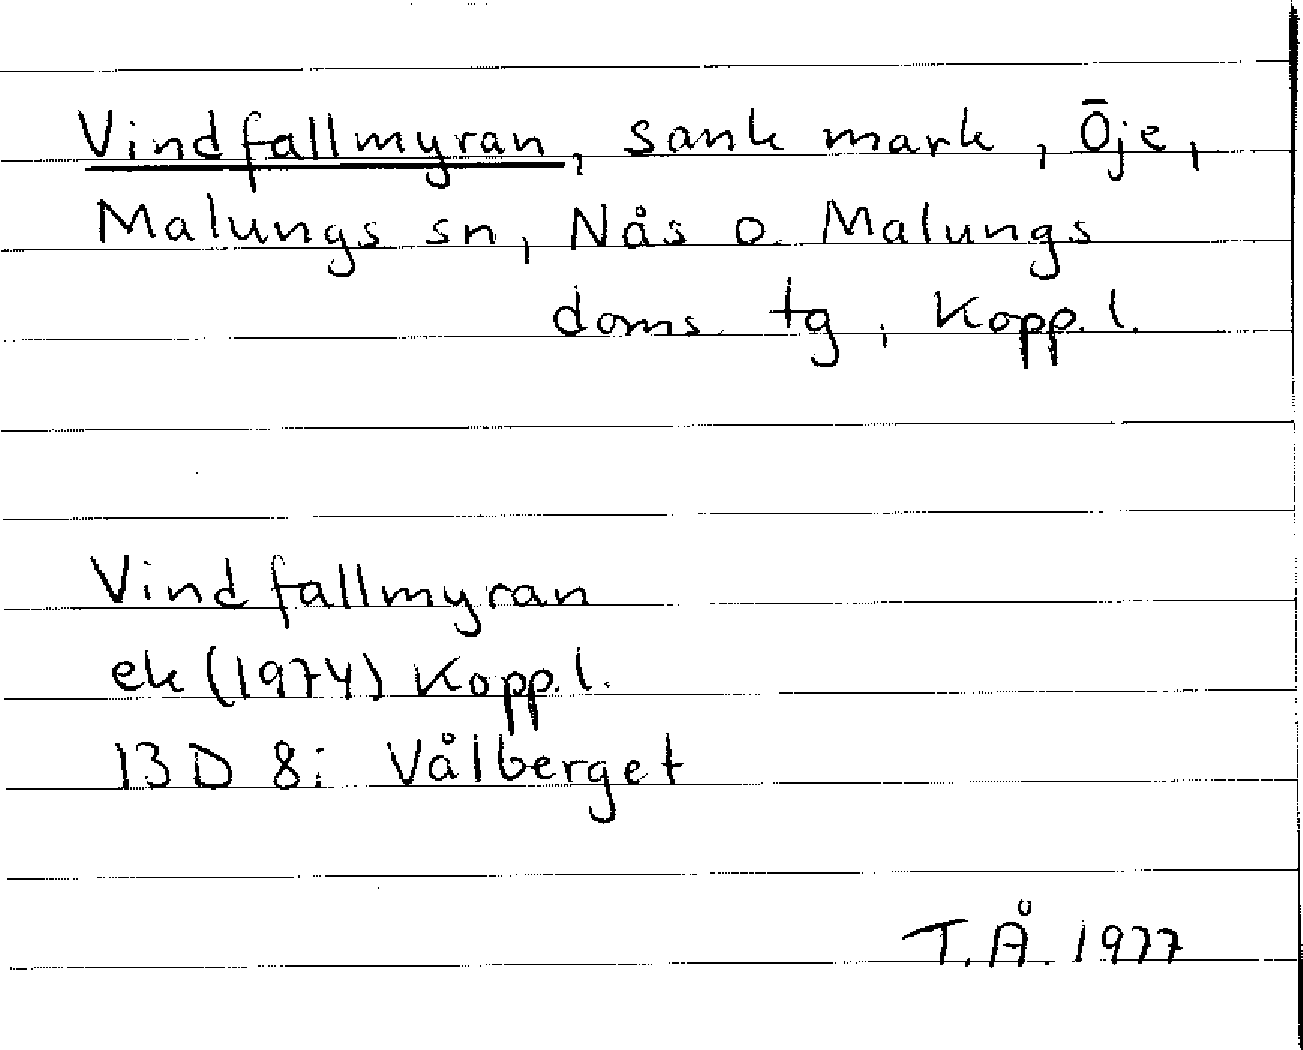 Vindfallmyran, sank mark, Öje,
Malungs sn, Nås o. Malungs
doms. tg, Kopp. l.
Vindfallmyran
ek (1974) Kopp. l.
13 D 8i Vålberget
T.Å. 1977